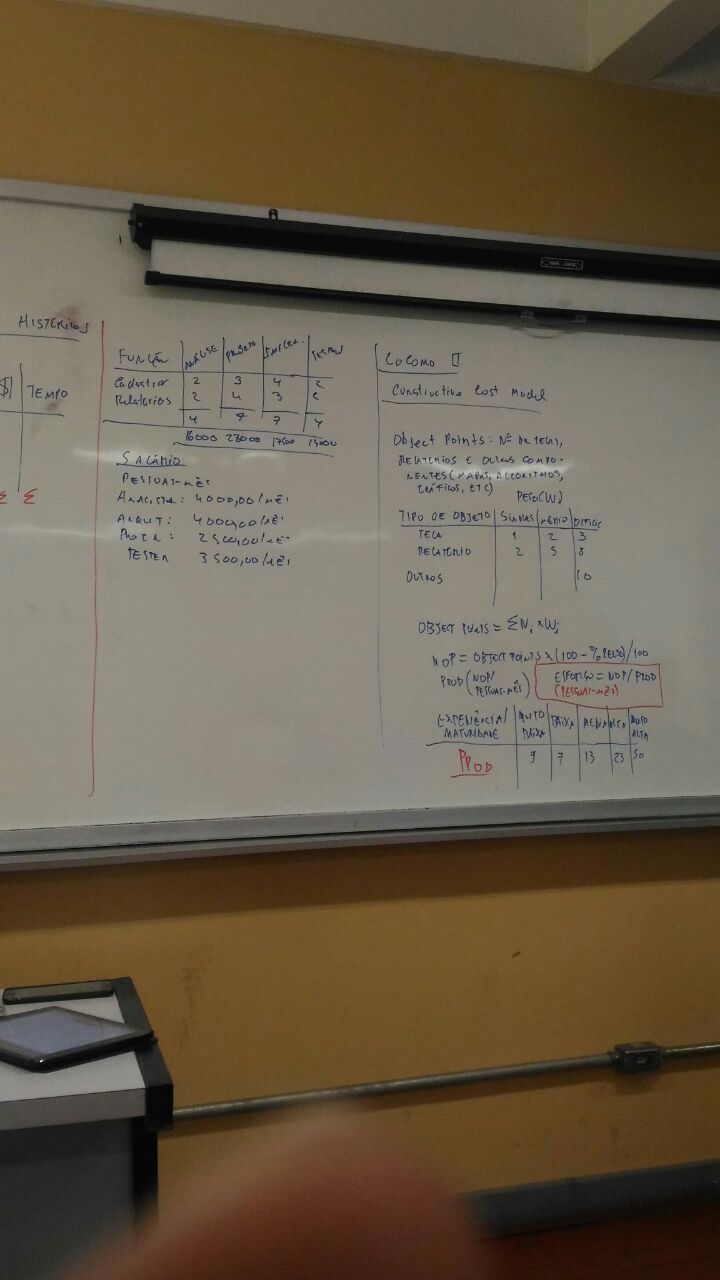 HISTÓRICOS
$ TEMPO
Σ Σ
FUNÇÃO ANÁLISE PROJETO IMPLEM. TESTES
Cadastrar 2 3 4 2
Relatórios 2 4 3 2
4 7 7 4
16000 28000 17500
SALÁRIO
PESSOAS-MÊS
ANALISTA: 4000,00/MÊS
ARQUIT: 4000,00/MÊS
2500,00/MÊS
TESTER 3500,00/MÊS
COCOMO II
Constructive Cost Model
Object Points: Nº DE TELAS,
RELATÓRIOS E OUTROS COMPO-
NENTES (MAPAS, ALGORITMOS,
GRÁFICOS, ETC)
PESO(W)
TIPO DE OBJETO SIMPLES MÉDIO DIFÍCIL
TELA 1 2 3
RELATÓRIO 2 5 8
OUTROS 10
OBJECT POINTS = ΣNi × Wi
NOP = OBJECT POINTS × (100 - % REUSO)/100
PROD (NOP/PESSOAS-MÊS)
ESFORÇO = NOP/PROD
(PESSOAS-MÊS)
EXPERIÊNCIA/MATURIDADE MUITO BAIXA BAIXA MÉDIA ALTA MUITO ALTA
PROD 9 7 13 23 50